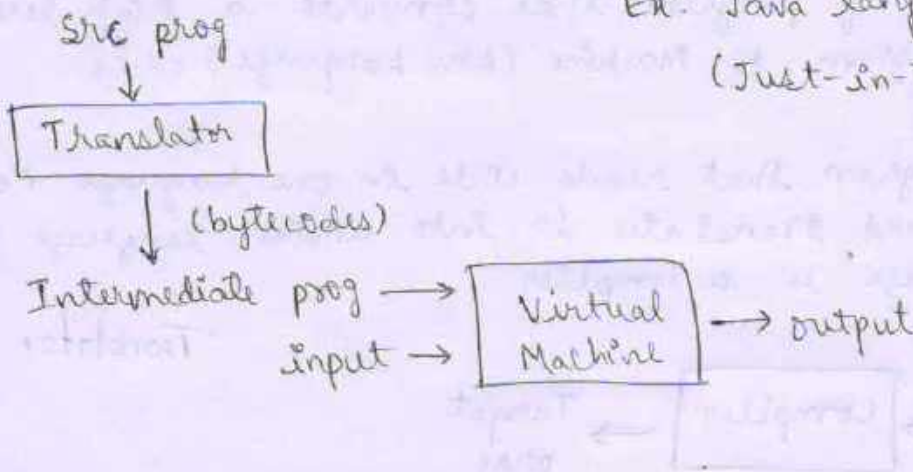 Src prog
Ex Java lang
(Just-in-
Translator
(bytecodes)
Intermediate prog
input
Virtual
Machine
output